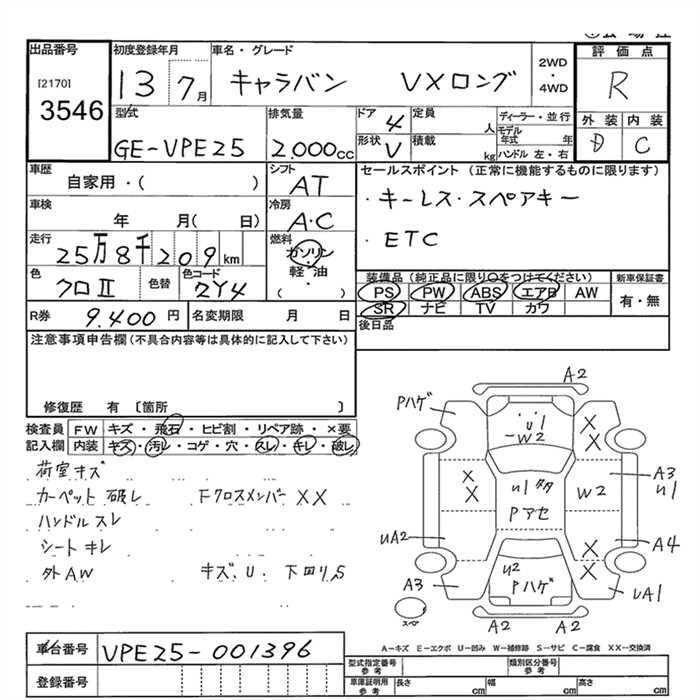 出品番号
[2170]
3546
初度登録年月
13 7月
車名・グレード
キャラバン VXロング
2WD
・
4WD
評価点
R
外装 内装
D C
型式
GE-VPE25
排気量
2.000cc
ドア
4
形状
V
定員
人
積載
kg
ディーラー・並行
モデル年式 年
ハンドル 左・右
車歴
自家用・( )
車検
年 月( 日)
走行
25万8千209km
色
クロⅡ
色替
色コード
2Y4
シフト
AT
冷房
A・C
燃料
ガソリン
・
軽油
・
( )
セールスポイント (正常に機能するものに限ります)
・キーレス・スペアキー
・ETC
装備品 (純正品に限り○をつけてください)
PS PW ABS エアB AW
SR ナビ TV カワ
新車保証書
有・無
後日品
R券 9.400円
名変期限 月 日
注意事項申告欄(不具合内容等は具体的に記入して下さい)
修復歴 有 〔箇所 〕
検査員記入欄
FW キズ・飛石・ヒビ割・リペア跡・×要
内装 キズ・汚レ・コゲ・穴・スレ・キレ・破レ
荷室キズ
カーペット破レ Fクロスメンバー XX
ハンドルスレ
シートキレ
外AW キズ、U. 下回りS
A2
Pハゲ
U1
W2
X
X
X
X
U1 多
Pアセ
W2
A3
U1
UA2
A4
X
X
U2
Pハゲ
A3
UA1
スペア
A2
A2
A-キズ E-エクボ U-凹み W-補修跡 S-サビ C-腐食 XX-交換済
車台番号
VPE25-001396
登録番号
型式指定番号
参考
類別区分番号
参考
車庫証明用
参考
長さ cm
幅 cm
高さ cm